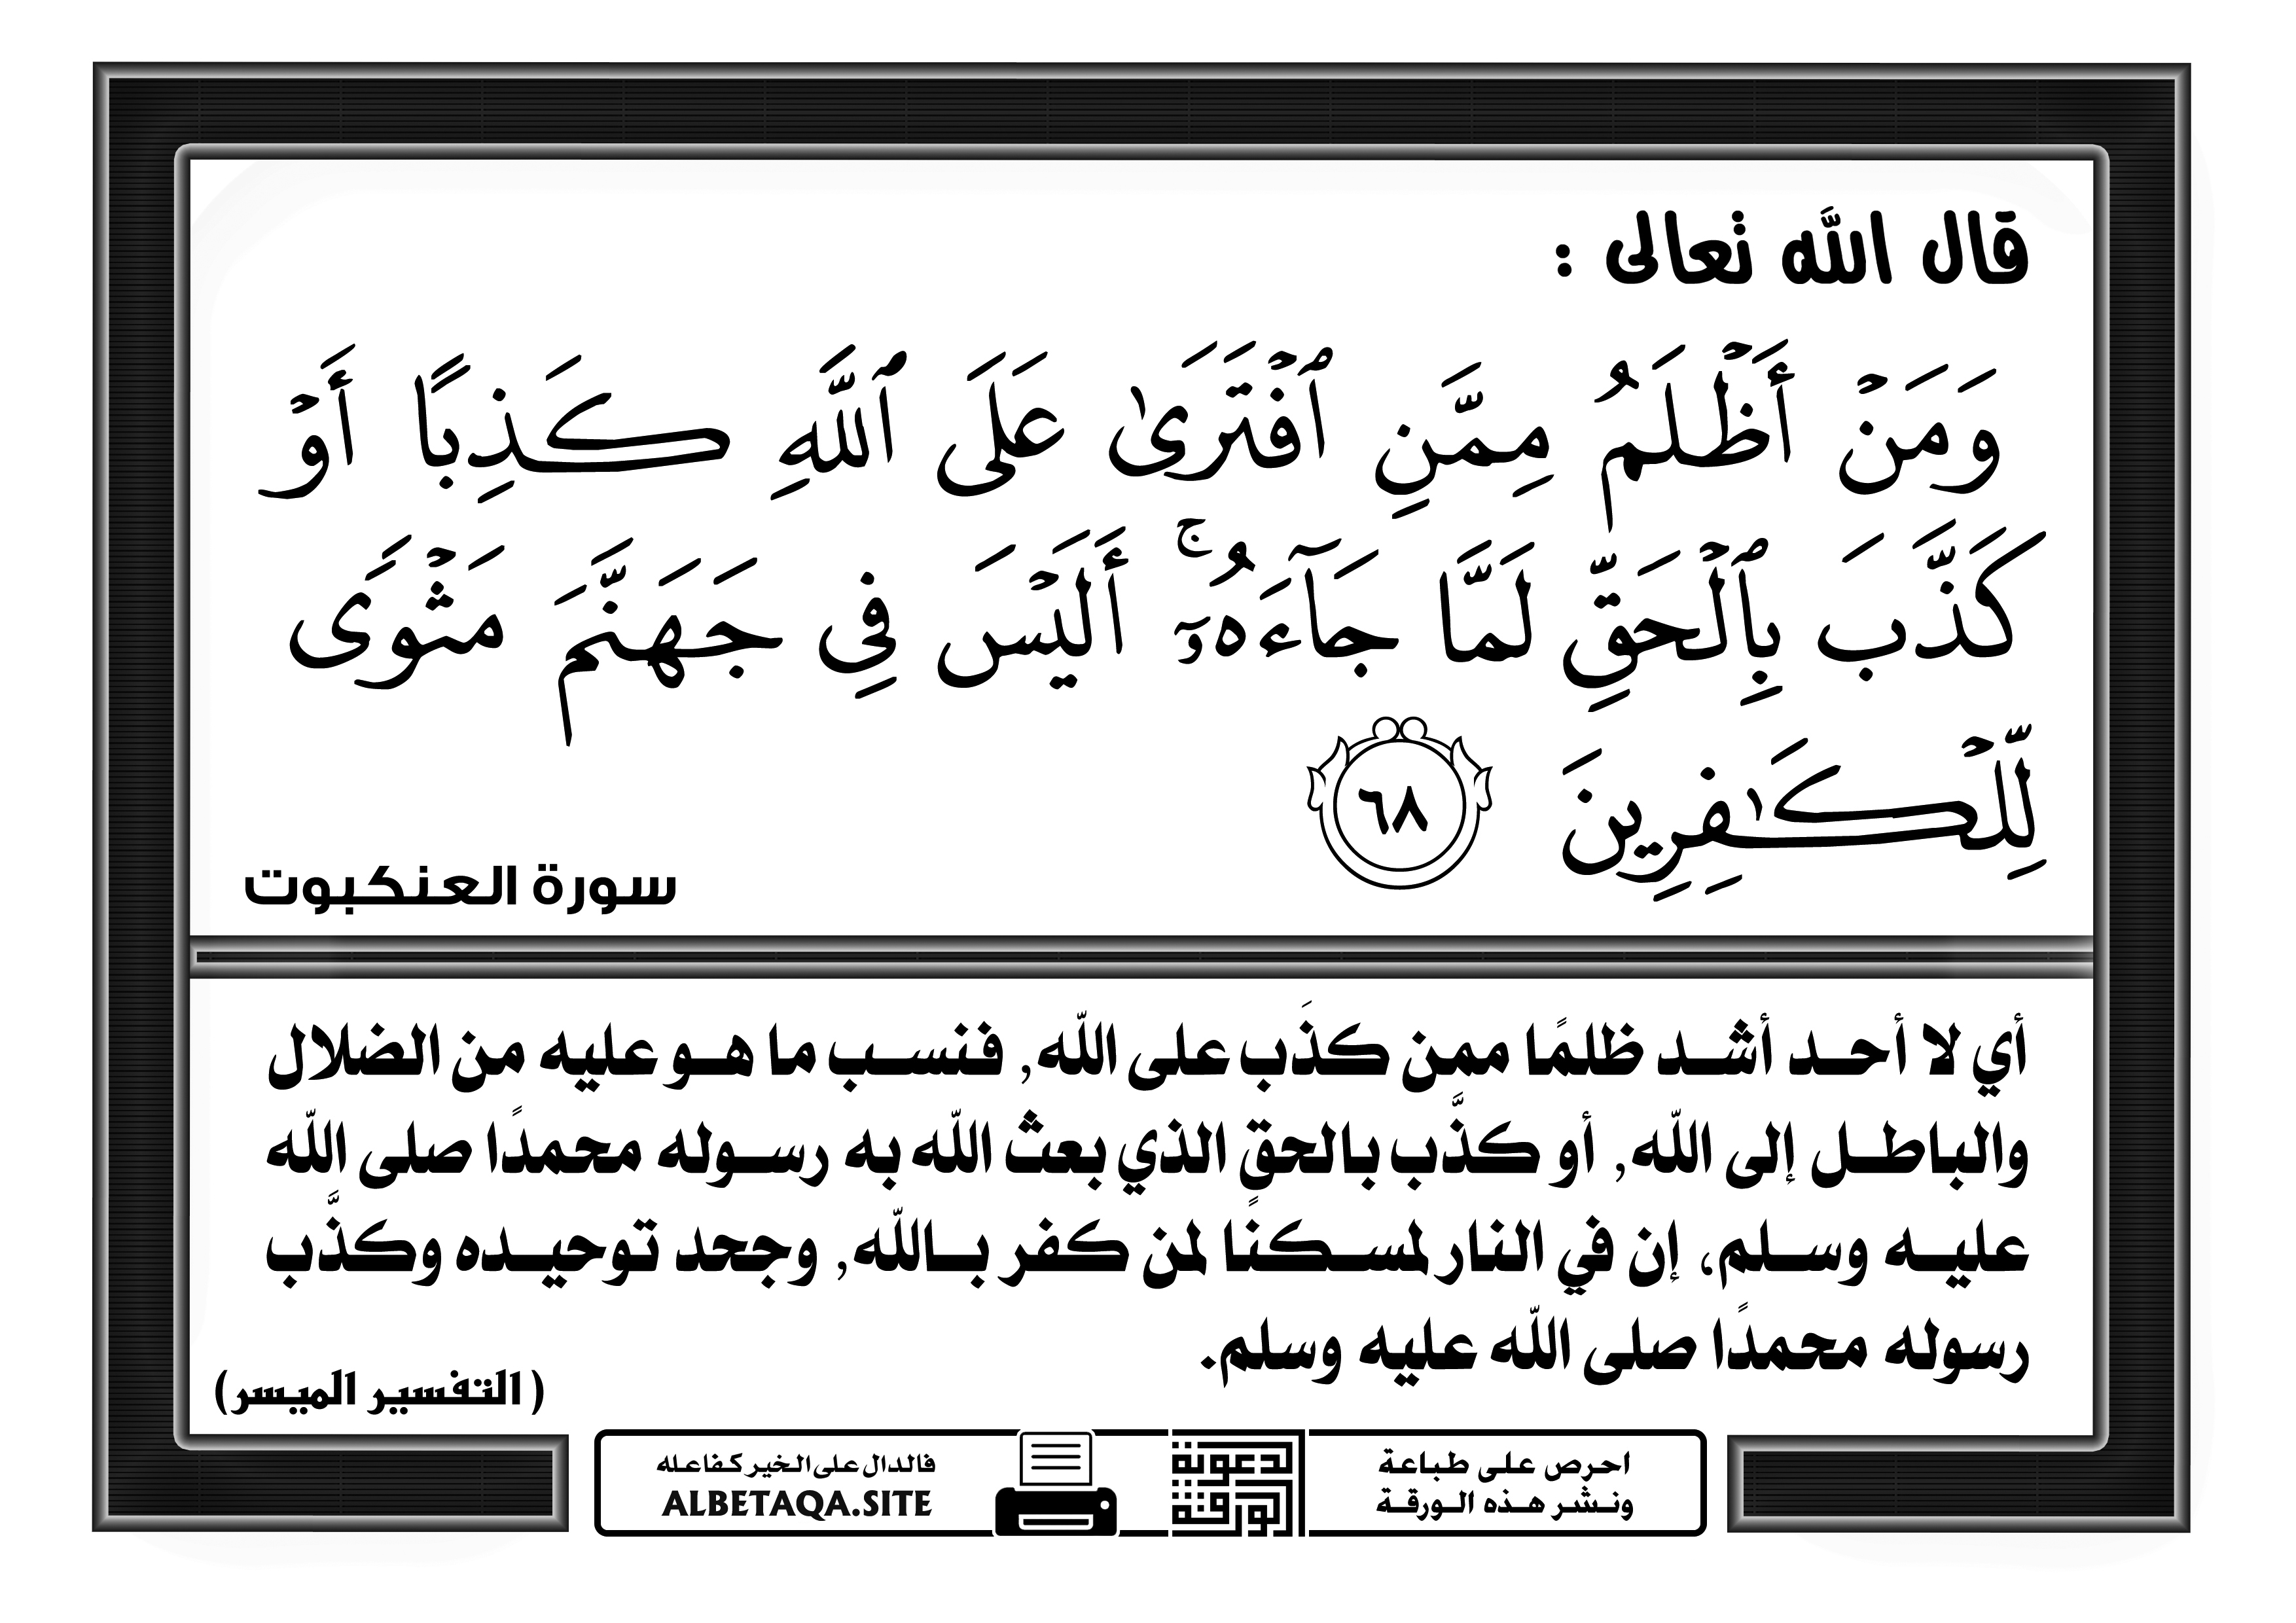 قال الله تعالى :
وَمَنۡ أَظۡلَمُ مِمَّنِ ٱفۡتَرَىٰ عَلَى ٱللَّهِ كَذِبًا أَوۡ
كَذَّبَ بِٱلۡحَقِّ لَمَّا جَآءَهُۥٓۚ أَلَيۡسَ فِي جَهَنَّمَ مَثۡوٗى
لِّلۡكَٰفِرِينَ ٦٨
سورة العنكبوت
أي لا أحد أشد ظلمًا ممن كذَب على الله, فنسب ما هو عليه من الضلال
والباطل إلى الله, أو كذَّب بالحق الذي بعث الله به رسوله محمدًا صلى الله
عليه وسلم، إن في النار لمسكنًا لمن كفر بالله, وجحد توحيده وكذَّب
رسوله محمدًا صلى الله عليه وسلم.
( التفسير الميسر)
احرص على طباعة
ونشر هذه الورقة
لدعوتة
الورقتة
فالدال على الخير كفاعله
ALBETAQA.SITE